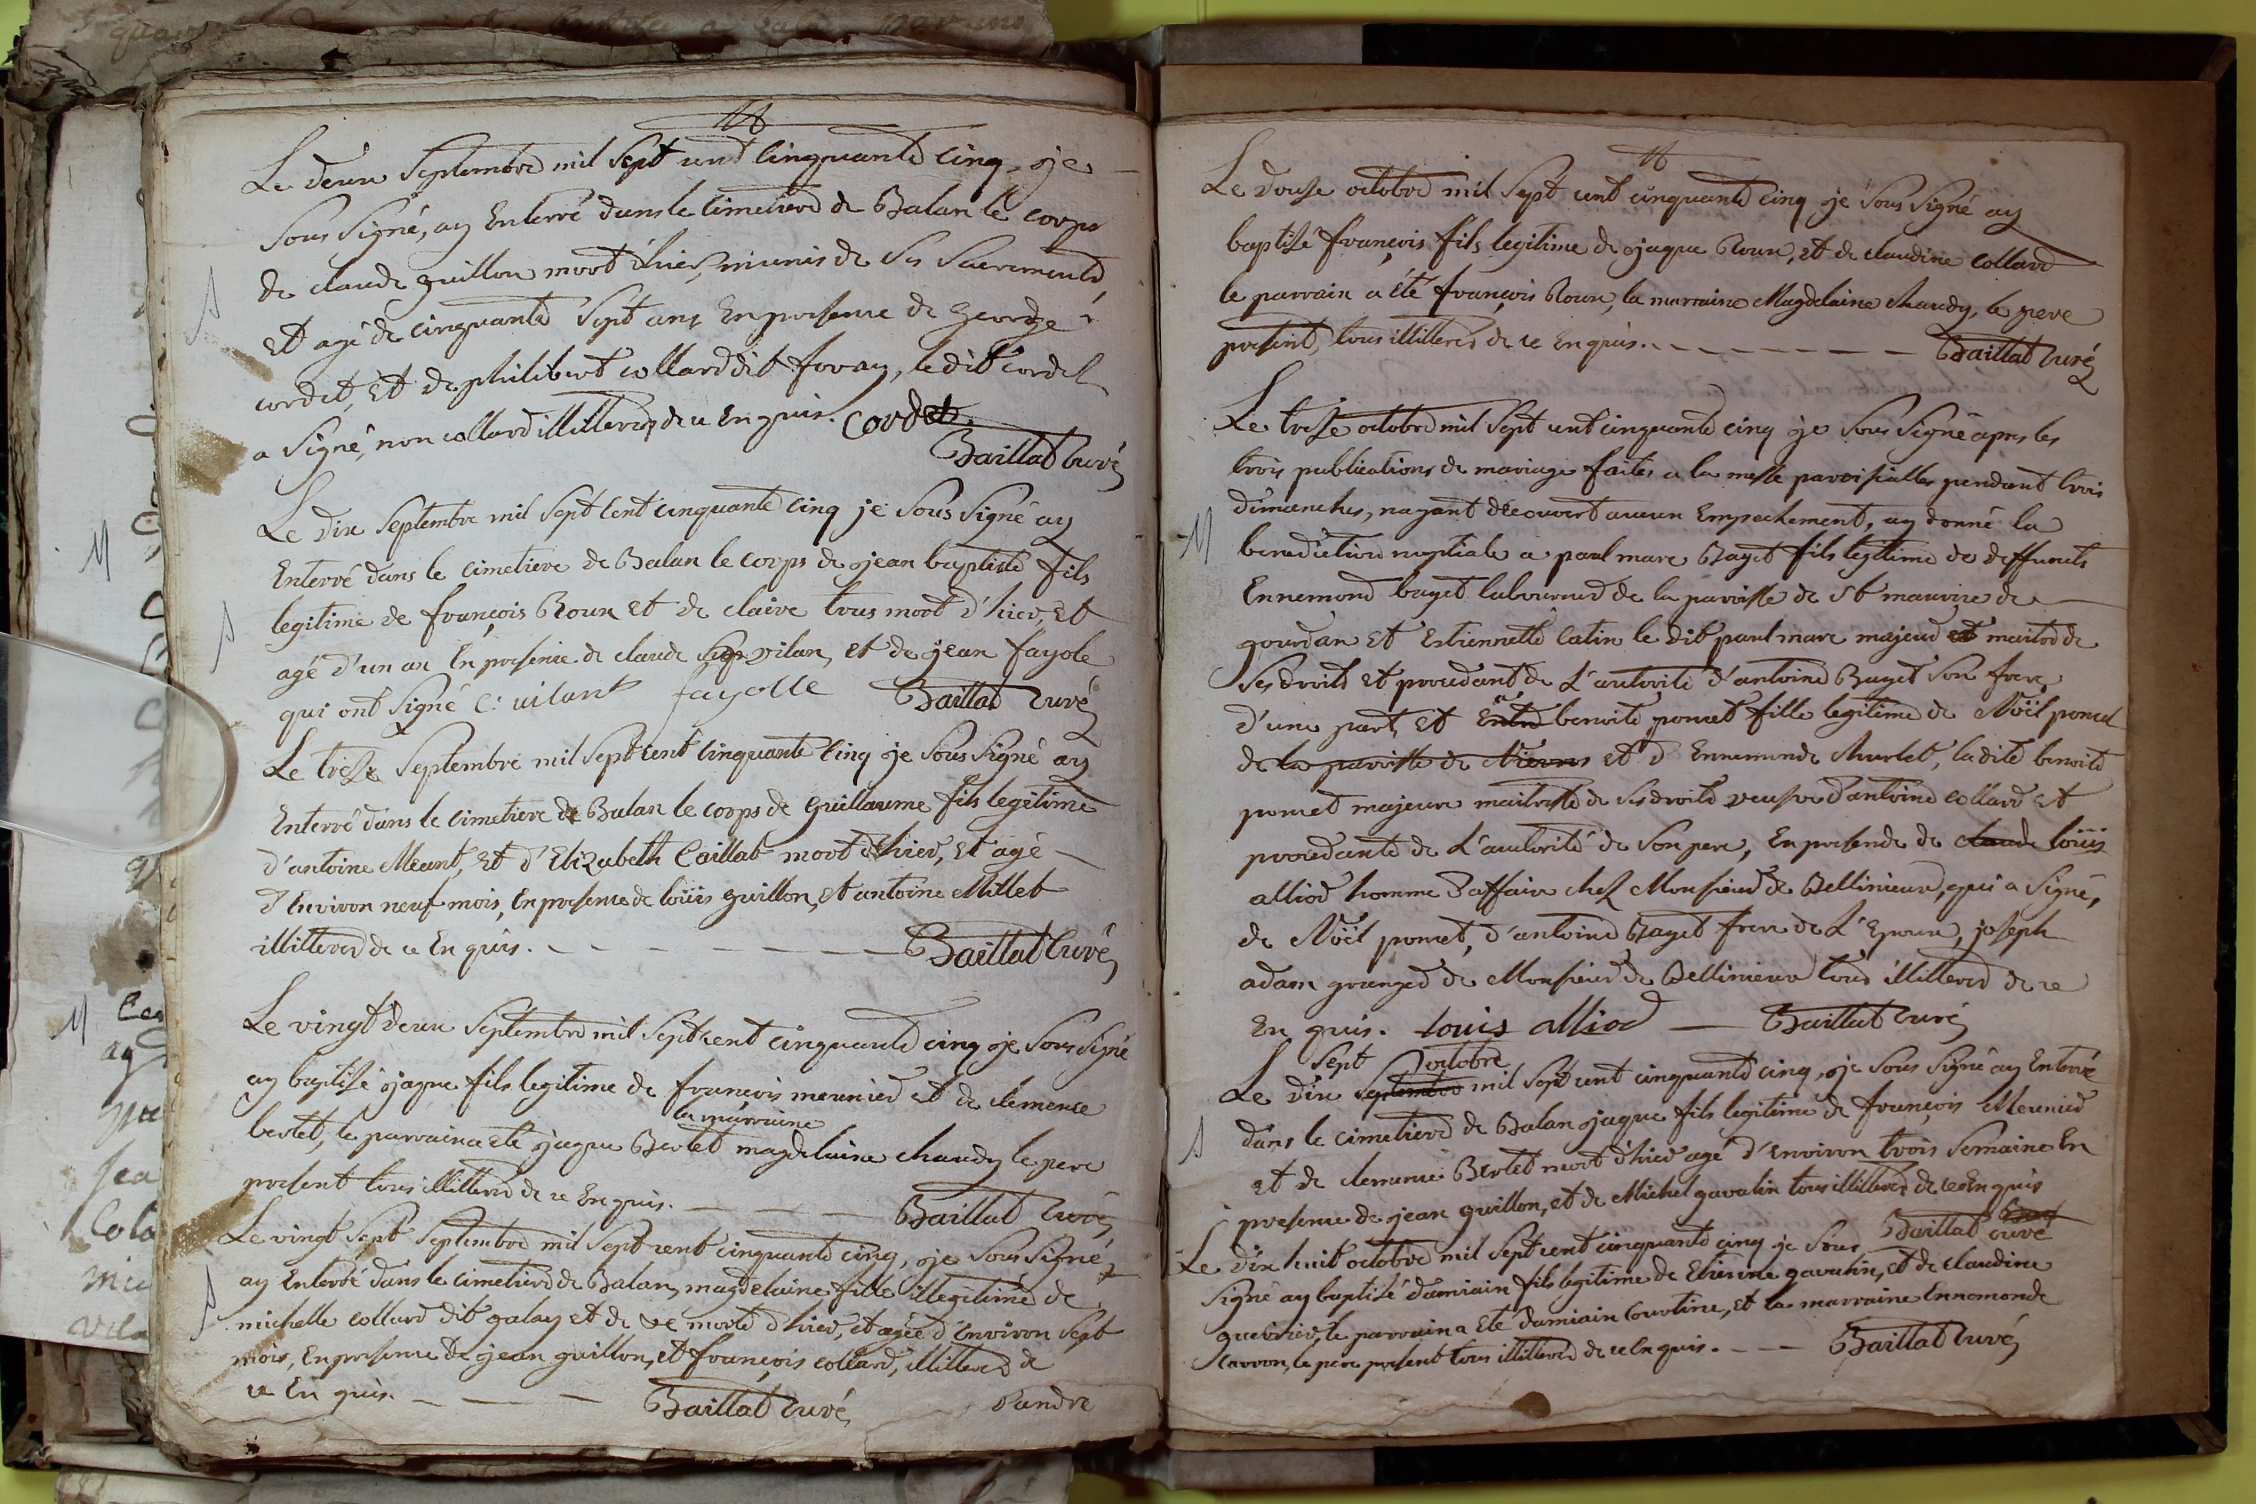 Le deux Septembre mil Sept cent Cinquante Cinq, je
Sous Signé, ay Enterré dans le Cimetiere de Balan le corps
de claude guillon mort d'hier, munis de Ses Sacrements,
Et agé de cinquante Sept ans En presence de George
cordet, Et de philibert collard dit foray, le dit cordet
a Signé, non collard illitteré de ce Enquis. Cordet
Baillat Curé
Le dix Septembre mil Sept Cent cinquante Cinq je Sous Signé ay
Enterré dans le Cimetiere de Balan le corps de jean baptiste fils
legitime de françois Roux Et de claire tous mort d'hier, Et
agé d'un an En presence de claude vilan, et de jean fayole
qui ont Signé C. vilant fayolle Baillat Curé
Le treize Septembre mil Sept cent Cinquante Cinq je Sous Signé ay
Enterré dans le Cimetiere de Balan le corps de Guillaume fils legitime
d'antoine Meant, Et d'Elizabeth Caillat mort d'hier, Et agé
d'Environ neuf mois, En presence de loüis guillon, et antoine Millet
illitteres de ce Enquis. Baillat Curé
Le vingt deux Septembre mil Sept cent cinquante cinq je Sous Signé
ay baptisé jaque fils legitime de françois meunier et de clemence
bertet, le parrain a Eté jaque Bertet la marraine magdelaine chaudy le pere
present tous illitteres de ce Enquis. Baillat Curé
Le vingt Sept Septembre mil Sept cent cinquante cinq, je Sous Signé
ay Enterré dans le Cimetiere de Balan, magdelaine fille illegitime de
michelle collard dit galay et de morte d'hier, et agée d'Environ Sept
mois, En presence de jean guillon, et françois collard, illitteres de
ce Enquis. Baillat Curé
Le douse octobre mil Sept cent cinquante cinq je Sous Signé ay
baptisé françois fils legitime de jaque Roux, et de claudine collard
le parrain a été françois Roux, la marraine Magdelaine chaudy, le pere
present, tous illitteres de ce Enquis. Baillat Curé
Le treise octobre mil Sept cent cinquante cinq je Sous Signé apres les
trois publications de mariage faites a la messe paroissialle pendant trois
dimanches, nayant découvert aucun Empechement, ay donné la
benediction nuptiale a paul marc Baget fils legitime de deffunts
Ennemond baget laboureur de la paroisse de St maurice de
gourdan et Estiennette Catin le dit paul marc majeur et maitre de
Ses droits et procedant de L'autorité d'antoine Baget Son frere,
d'une part, et Entre a benoite pomet fille legitime de Noël pomet
de la paroisse de Nievros et d'Ennemonde churlet, la dite benoite
pomet majeure maitresse de Ses droits veufve d'antoine collard et
procedante de L'autorité de Son pere, En presence de claude loüis
alliod homme d'affaire chez Monsieur de Bellinieux, qui a Signé,
de Noël pomet, d'antoine Baget frere de L'Epoux, joseph
adam granger de Monsieur de Bellinieux tous illitteres de ce
Enquis. louis alliod Baillat Curé
Le dix Sept Septembre octobre mil Sept cent cinquante cinq, je Sous Signé ay Enterré
dans le Cimetiere de Balan jaque fils legitime de françois Meunier
et de clemence Bertet mort d'hier agé d'Environ trois Semaine En
presence de jean guillon, et de Michel gavalin tous illitteres de ce Enquis
Baillat Curé
Le dix huit octobre mil Sept cent cinquante cinq je Sous
Signé ay baptisé damiain fils legitime de Etienne gavalin, et de claudine
le parrain a Eté damiain Courtine, et la marraine Ennemonde
carron, le pere present tous illitteres de ce Enquis. Baillat Curé